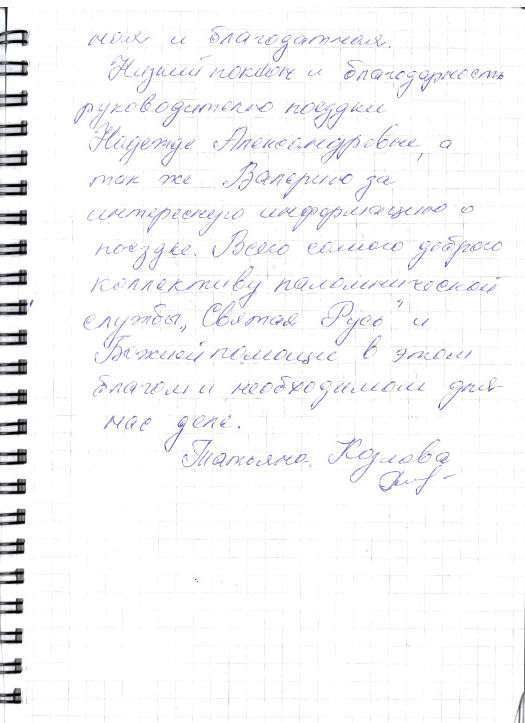 ная и благодатная.
Низкий поклон и благодарность
руководителю поездки
Надежде Александровне, а
так же Валерию за
интересную информацию о
поездке. Всего самого доброго
коллективу паломнической
службы „Святая Русь" и
Божией помощи в этом
благом и необходимом для
нас деле.
Татьяна Козлова